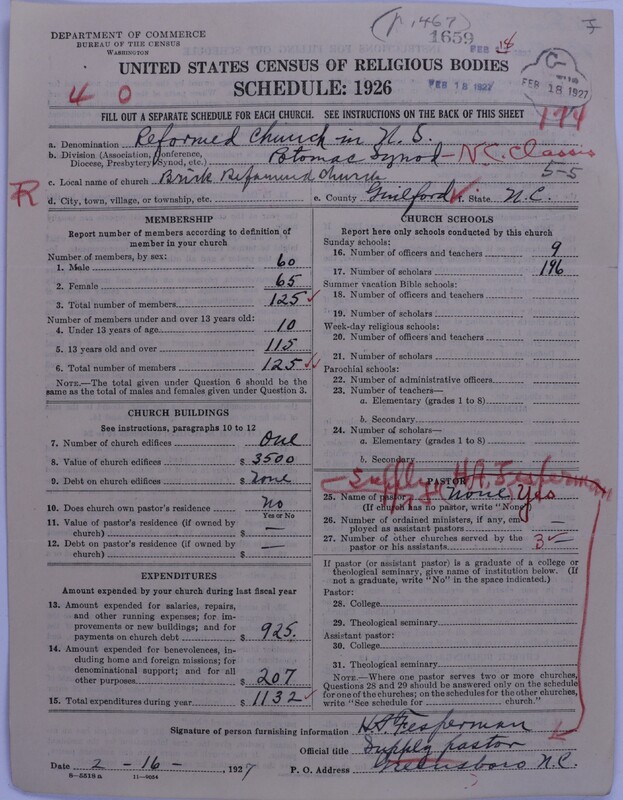 (p. 1467)
1659
DEPARTMENT OF COMMERCE
BUREAU OF THE CENSUS
WASHINGTON
FEB 18 1927
FEB 18 1927
UNITED STATES CENSUS OF RELIGIOUS BODIES
SCHEDULE: 1926
4 0
FILL OUT A SEPARATE SCHEDULE FOR EACH CHURCH. SEE INSTRUCTIONS ON THE BACK OF THIS SHEET
a. Denomination Reformed Church in U. S.
b. Division (Association, Conference, Diocese, Presbytery, Synod, etc.) Potomac Synod - N.C. Classis
5-5
c. Local name of church Brick Reformed Church
R
d. City, town, village, or township, etc. e. County Guilford f. State N.C.
MEMBERSHIP
Report number of members according to definition of member in your church
Number of members, by sex:
1. Male 60
2. Female 65
3. Total number of members 125
Number of members under and over 13 years old:
4. Under 13 years of age 10
5. 13 years old and over 115
6. Total number of members 125
NOTE.—The total given under Question 6 should be the same as the total of males and females given under Question 3.
CHURCH BUILDINGS
See instructions, paragraphs 10 to 12
7. Number of church edifices One
8. Value of church edifices $ 3500
9. Debt on church edifices $ None
10. Does church own pastor's residence? No
Yes or No
11. Value of pastor's residence (if owned by church) $ —
12. Debt on pastor's residence (if owned by church) $ —
EXPENDITURES
Amount expended by your church during last fiscal year
13. Amount expended for salaries, repairs, and other running expenses; for improvements or new buildings; and for payments on church debt $ 925.
14. Amount expended for benevolences, including home and foreign missions; for denominational support; and for all other purposes $ 207
15. Total expenditures during year $ 1132
CHURCH SCHOOLS
Report here only schools conducted by this church
Sunday schools:
16. Number of officers and teachers 9
17. Number of scholars 196
Summer vacation Bible schools:
18. Number of officers and teachers
19. Number of scholars
Week-day religious schools:
20. Number of officers and teachers
21. Number of scholars
Parochial schools:
22. Number of administrative officers
23. Number of teachers—
a. Elementary (grades 1 to 8)
b. Secondary
24. Number of scholars—
a. Elementary (grades 1 to 8)
b. Secondary
PASTOR
Supply H.A. Fesperman
25. Name of pastor None Yes
(If church has no pastor, write "None")
26. Number of ordained ministers, if any, employed as assistant pastors —
27. Number of other churches served by the pastor or his assistants 3
If pastor (or assistant pastor) is a graduate of a college or theological seminary, give name of institution below. (If not a graduate, write "No" in the space indicated.)
Pastor:
28. College
29. Theological seminary
Assistant pastor:
30. College
31. Theological seminary
NOTE.—Where one pastor serves two or more churches, Questions 28 and 29 should be answered only on the schedule for one of the churches; on the schedules for the other churches, write "See schedule for church."
Signature of person furnishing information H.A. Fesperman
Official title Supply pastor
Date 2 - 16 - , 1927 P. O. Address Greensboro N.C.
8—5518 a 11—9054